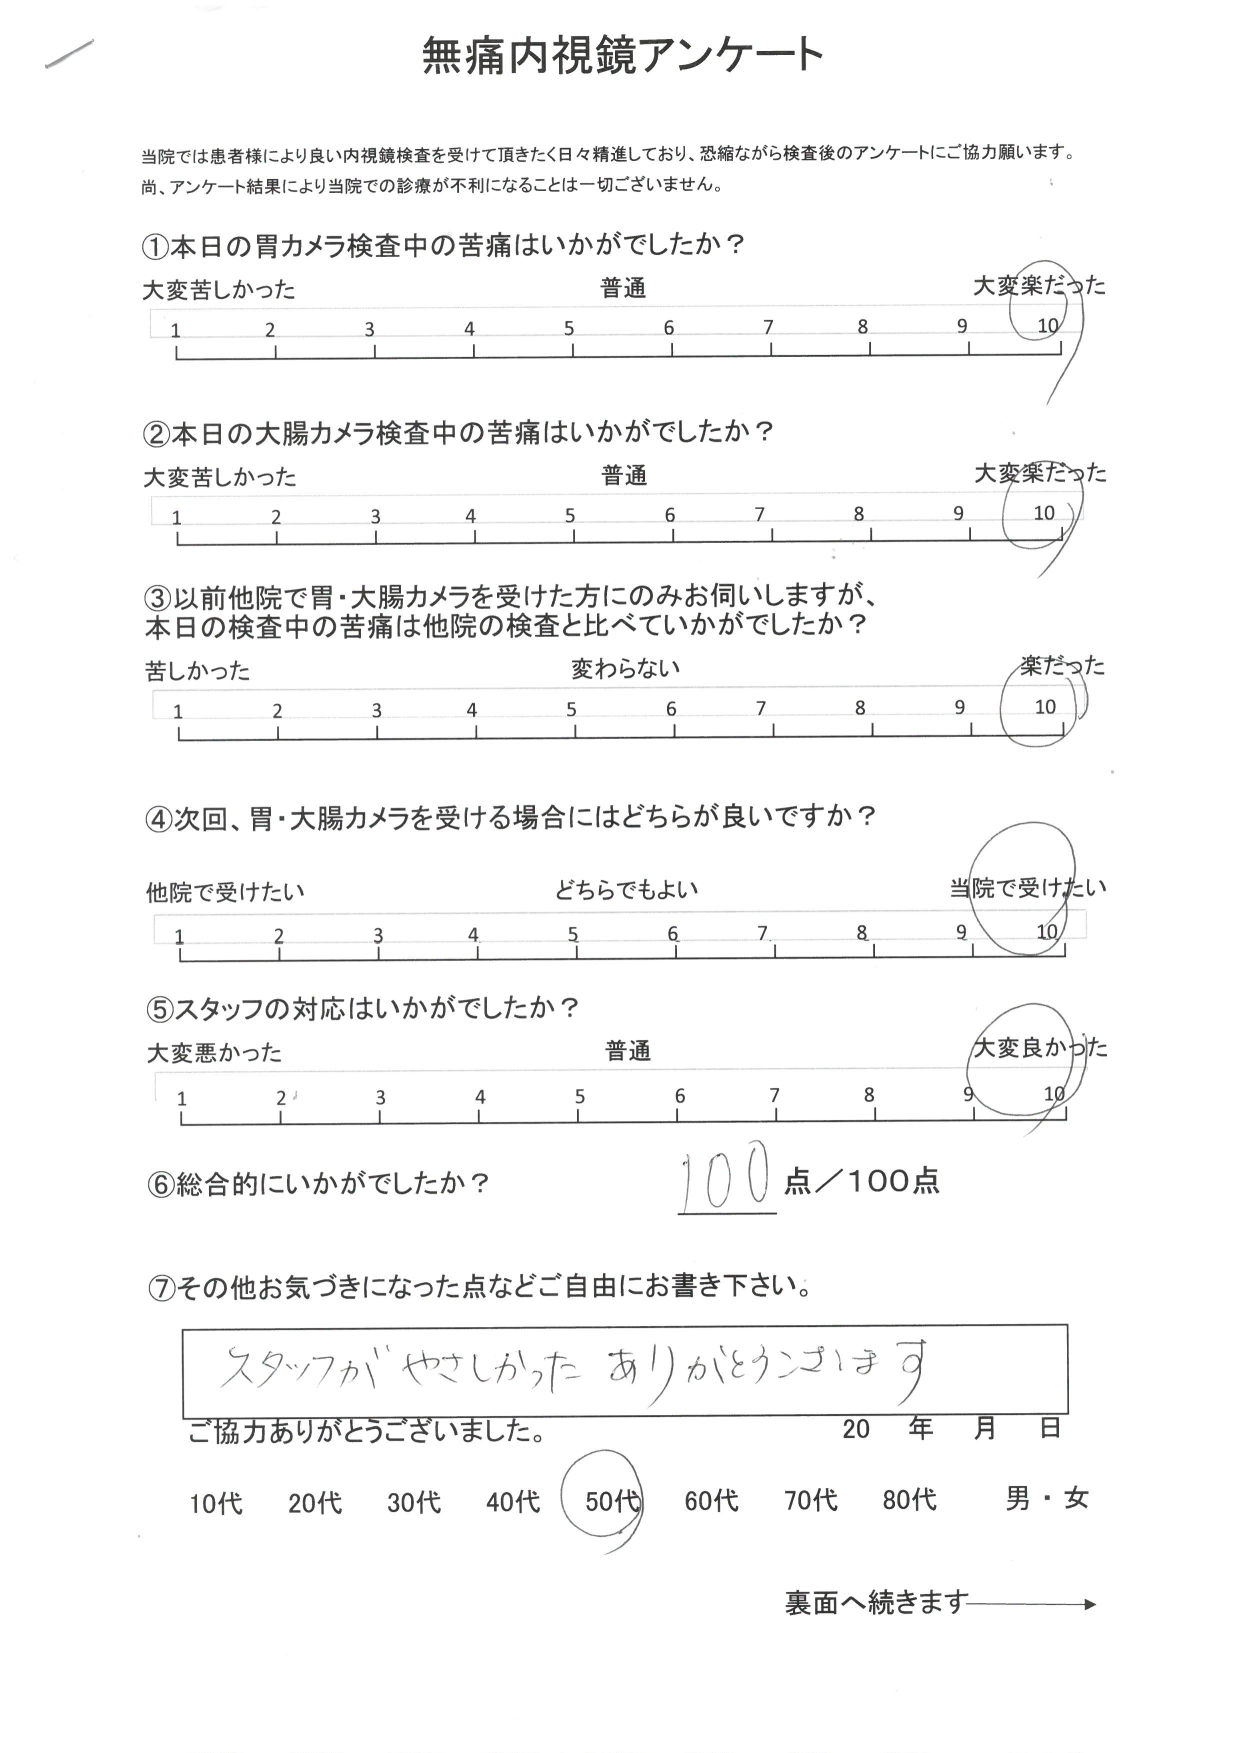 無痛内視鏡アンケート
当院では患者様により良い内視鏡検査を受けて頂きたく日々精進しており、恐縮ながら検査後のアンケートにご協力願います。
尚、アンケート結果により当院での診療が不利になることは一切ございません。
①本日の胃カメラ検査中の苦痛はいかがでしたか？
大変苦しかった 普通 大変楽だった
1 2 3 4 5 6 7 8 9 10
②本日の大腸カメラ検査中の苦痛はいかがでしたか？
大変苦しかった 普通 大変楽だった
1 2 3 4 5 6 7 8 9 10
③以前他院で胃・大腸カメラを受けた方にのみお伺いしますが、
本日の検査中の苦痛は他院の検査と比べていかがでしたか？
苦しかった 変わらない 楽だった
1 2 3 4 5 6 7 8 9 10
④次回、胃・大腸カメラを受ける場合にはどちらが良いですか？
他院で受けたい どちらでもよい 当院で受けたい
1 2 3 4 5 6 7 8 9 10
⑤スタッフの対応はいかがでしたか？
大変悪かった 普通 大変良かった
1 2 3 4 5 6 7 8 9 10
⑥総合的にいかがでしたか？ 100 点／100点
⑦その他お気づきになった点などご自由にお書き下さい。
スタッフが やさしかった ありがとうございます
ご協力ありがとうございました。 20 年 月 日
10代 20代 30代 40代 50代 60代 70代 80代 男・女
裏面へ続きます